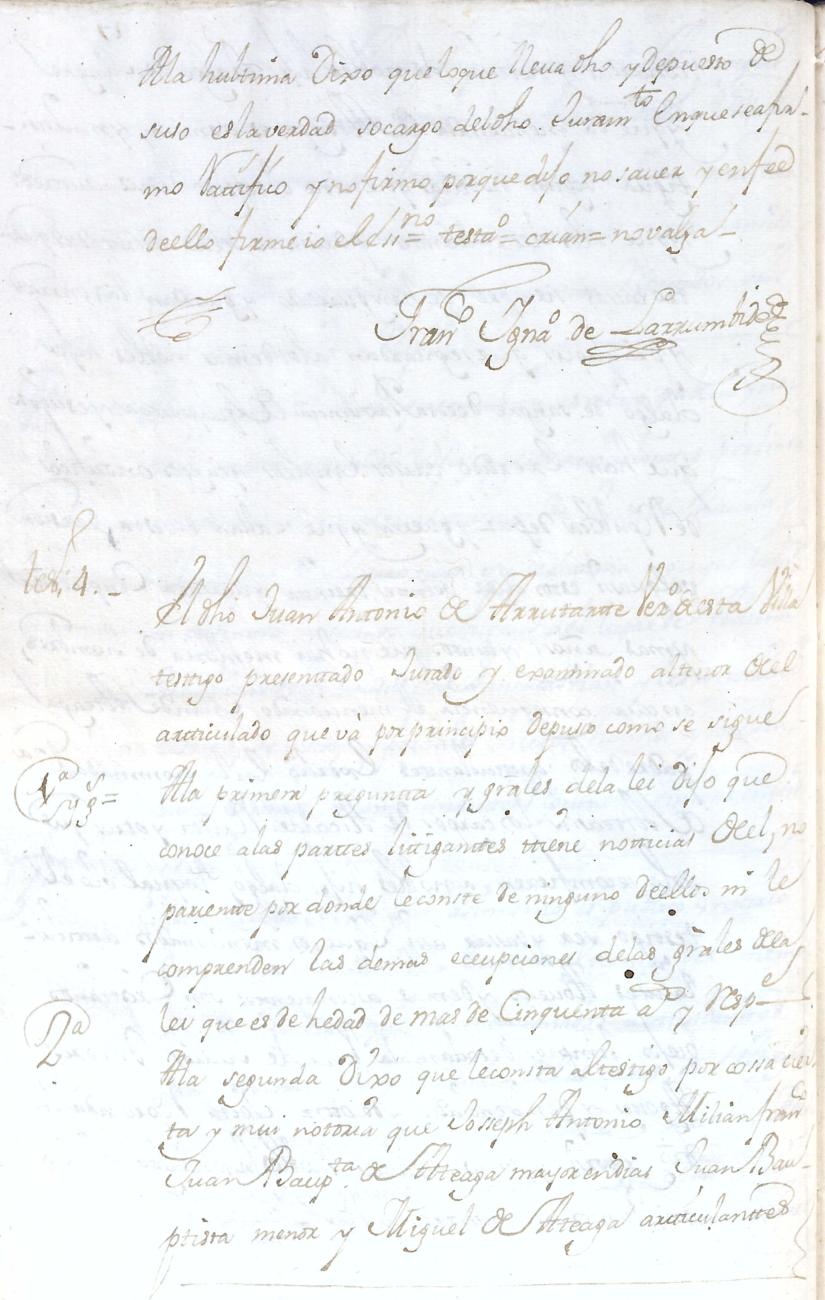 Ala hultima Dixo que loque lleva dho y depuesto de
suso es la verdad so cargo del dho. Juramto En que se afir-
mo Ratifico y no firmo porque dijo no saver y en fee
de ello firme io el essno= testado= crian= no valga-
Franco Ignao de Larrumbide
tesio 4.-
El dho Juan Antonio de Arrutartte Vezo de esta Villa
testtigo presentado Jurado y examinado al tenor de el
artticulado que và por principio depuso como se sigue
1a y gs=
Ala primera preguntta y grales dela lei dijo que
conoce alas parttes litigantttes ttiene notticias de el, no
parientte por donde le conste de ninguno de ellos ni le
comprenden las demas ecepciones delas grales de la
lei que es de hedad de mas de Cinquenta as y Respde
2a
Ala segunda Dixo que le consta al testigo por cossa cier-
ta y mui notoria que Joseph Antonio Milian franco
Juan Baupta de Atteaga mayor en dias Juan Bau-
ptista menor y Miguel de Atteaga artticulanttes